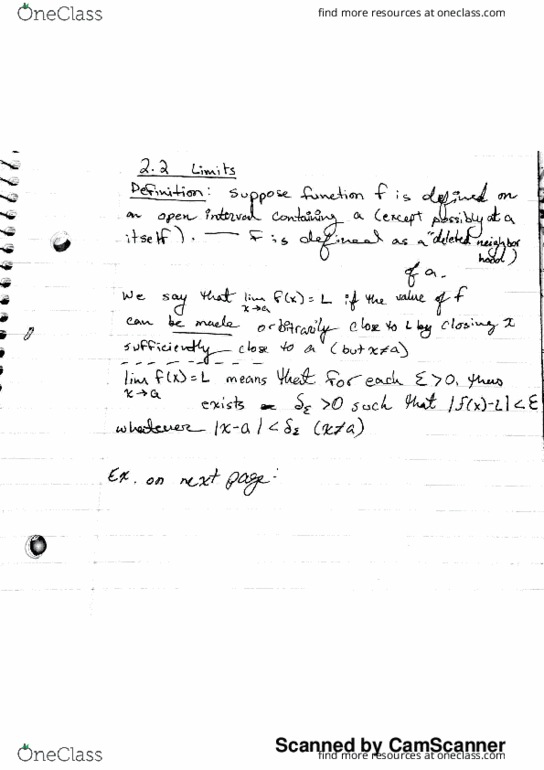 OneClass
find more resources at oneclass.com
2.2 Limits
Definition: suppose function f is defined on
an open interval containing a (except possibly at a
itself). — f is defined as a "deleted neighbor
hood)
of a.
We say that lim f(x) = L if the value of f
x→a
can be made arbitrarily close to L by closing x
sufficiently close to a (but x≠a)
lim f(x) = L means that for each ε>0, thus
x→a
exists δε >0 such that |f(x)-L|<ε
whatever |x-a|<δε (x≠a)
Ex. on next page:
Scanned by CamScanner
OneClass
find more resources at oneclass.com